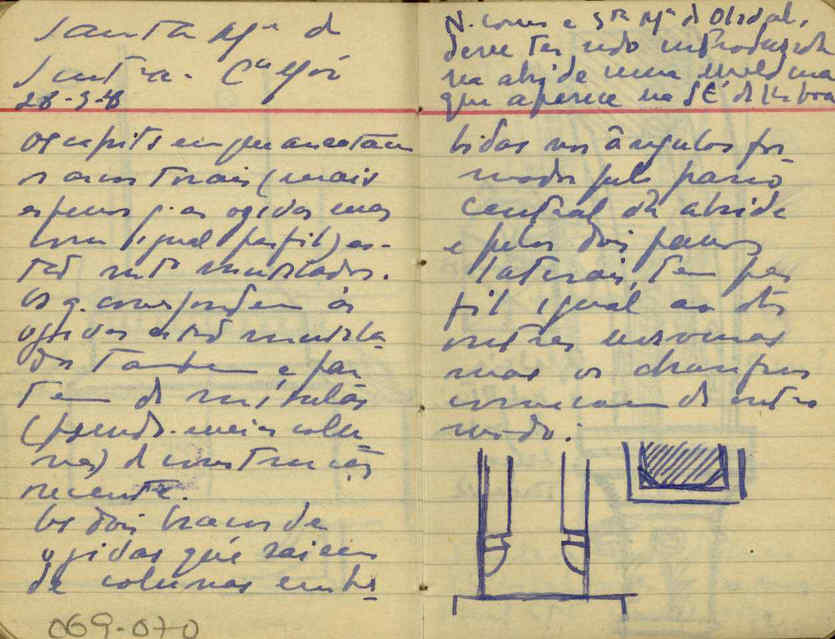 Santa Mª de
Sintra. Cª Mór
28-3-8
os capiteis em que assentam
os arcos torais (mais
espessos q. as ogivas mas
com igual perfil) es-
tão mtº mutilados.
Os q. correspondem às
ogivas estão mutila-
dos tambem e par-
tem de mísulas
(pseudo-meias colu-
nas) de construção
recente.
Os dois braços de
ogivas que saiem
de colunas embe-
069-070
N. como e Stª Mª do Olival,
deve ter sido introduzida
na abside uma
que aparece na SÉ de Lisboa
bidas nos ângulos for-
mados pelo pano
central da abside
e pelos dois panos
laterais, tem per-
fil igual ao das
outras nervuras
mas os chanfros
começam de outro
modo: